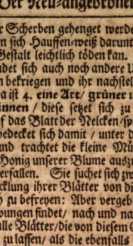 Der Neu=angeordne
er Scherben gehenget werde
n sich Hauffen=weiß darunt
Gestalt leichtlich tödten kan.
det sich auch noch andere U
bekriegen und ihr nachstel
aißt / eine Art / grüner
innen / diese setzet sich zu
f das Blatt der Nelcken/
bedecket sich damit / unter
und trachtet die kleine Mü
Honig unserer Blume ausz
erfallen. Sie suchet sich
cklung ihrer Blätter von d
h zu befreyen: Aber vergeb
oungen findet/ nach und n
ille Blätter/die von diesem
zu lassen/ als die ebenfals